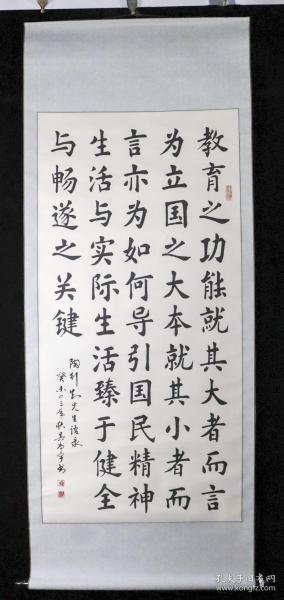 教育之功能就其大者而言
为立国之大本就其小者而
言亦为如何导引国民精神
生活与实际生活臻于健全
与畅遂之关键
陶行知先生语录
孔夫子旧书网
www.kongfz.com